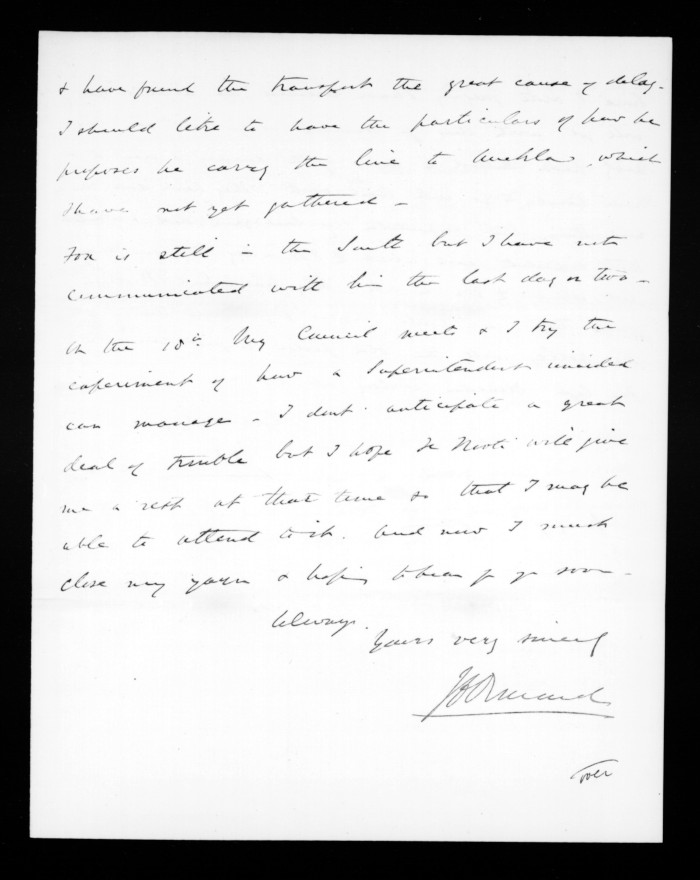 & have found the transport the great cause of delay.
I should like to have the particulars of how he
proposes be carry the line to Auckland, which
I have not yet gathered -
Fox is still in the South but I have not
communicated with him the last day or two -
On the 10th My Council meets & I try the
experiment of how a Superintendent
can manage - I dont anticipate a great
deal of trouble but I hope Te Kooti will give
me a rest at that time so that I may be
able to attend to it. And now I must
close my yarn & hoping to hear fr you soon -
Always.
Yours very sincerely
JD Ormond
over